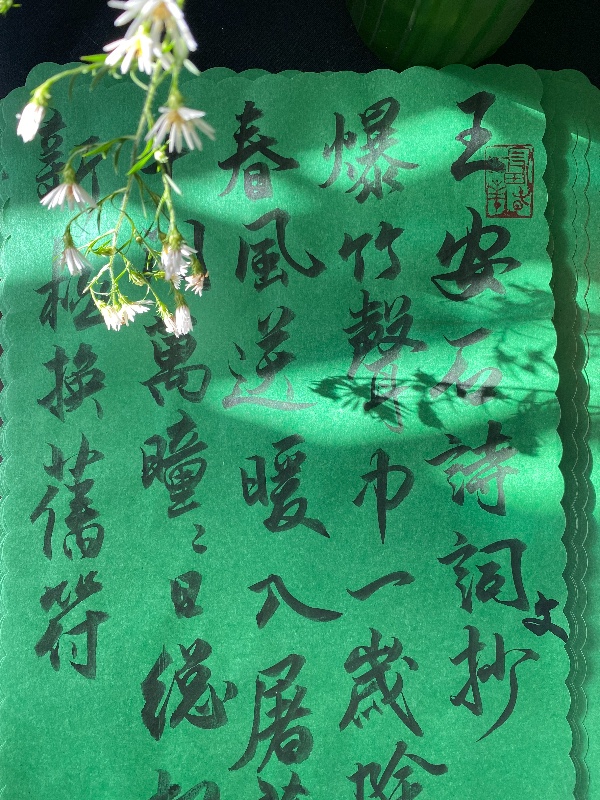 王安石詩詞文抄
爆竹聲中一歲除
春風送暖入屠
門萬曈々日總
新桃換舊符